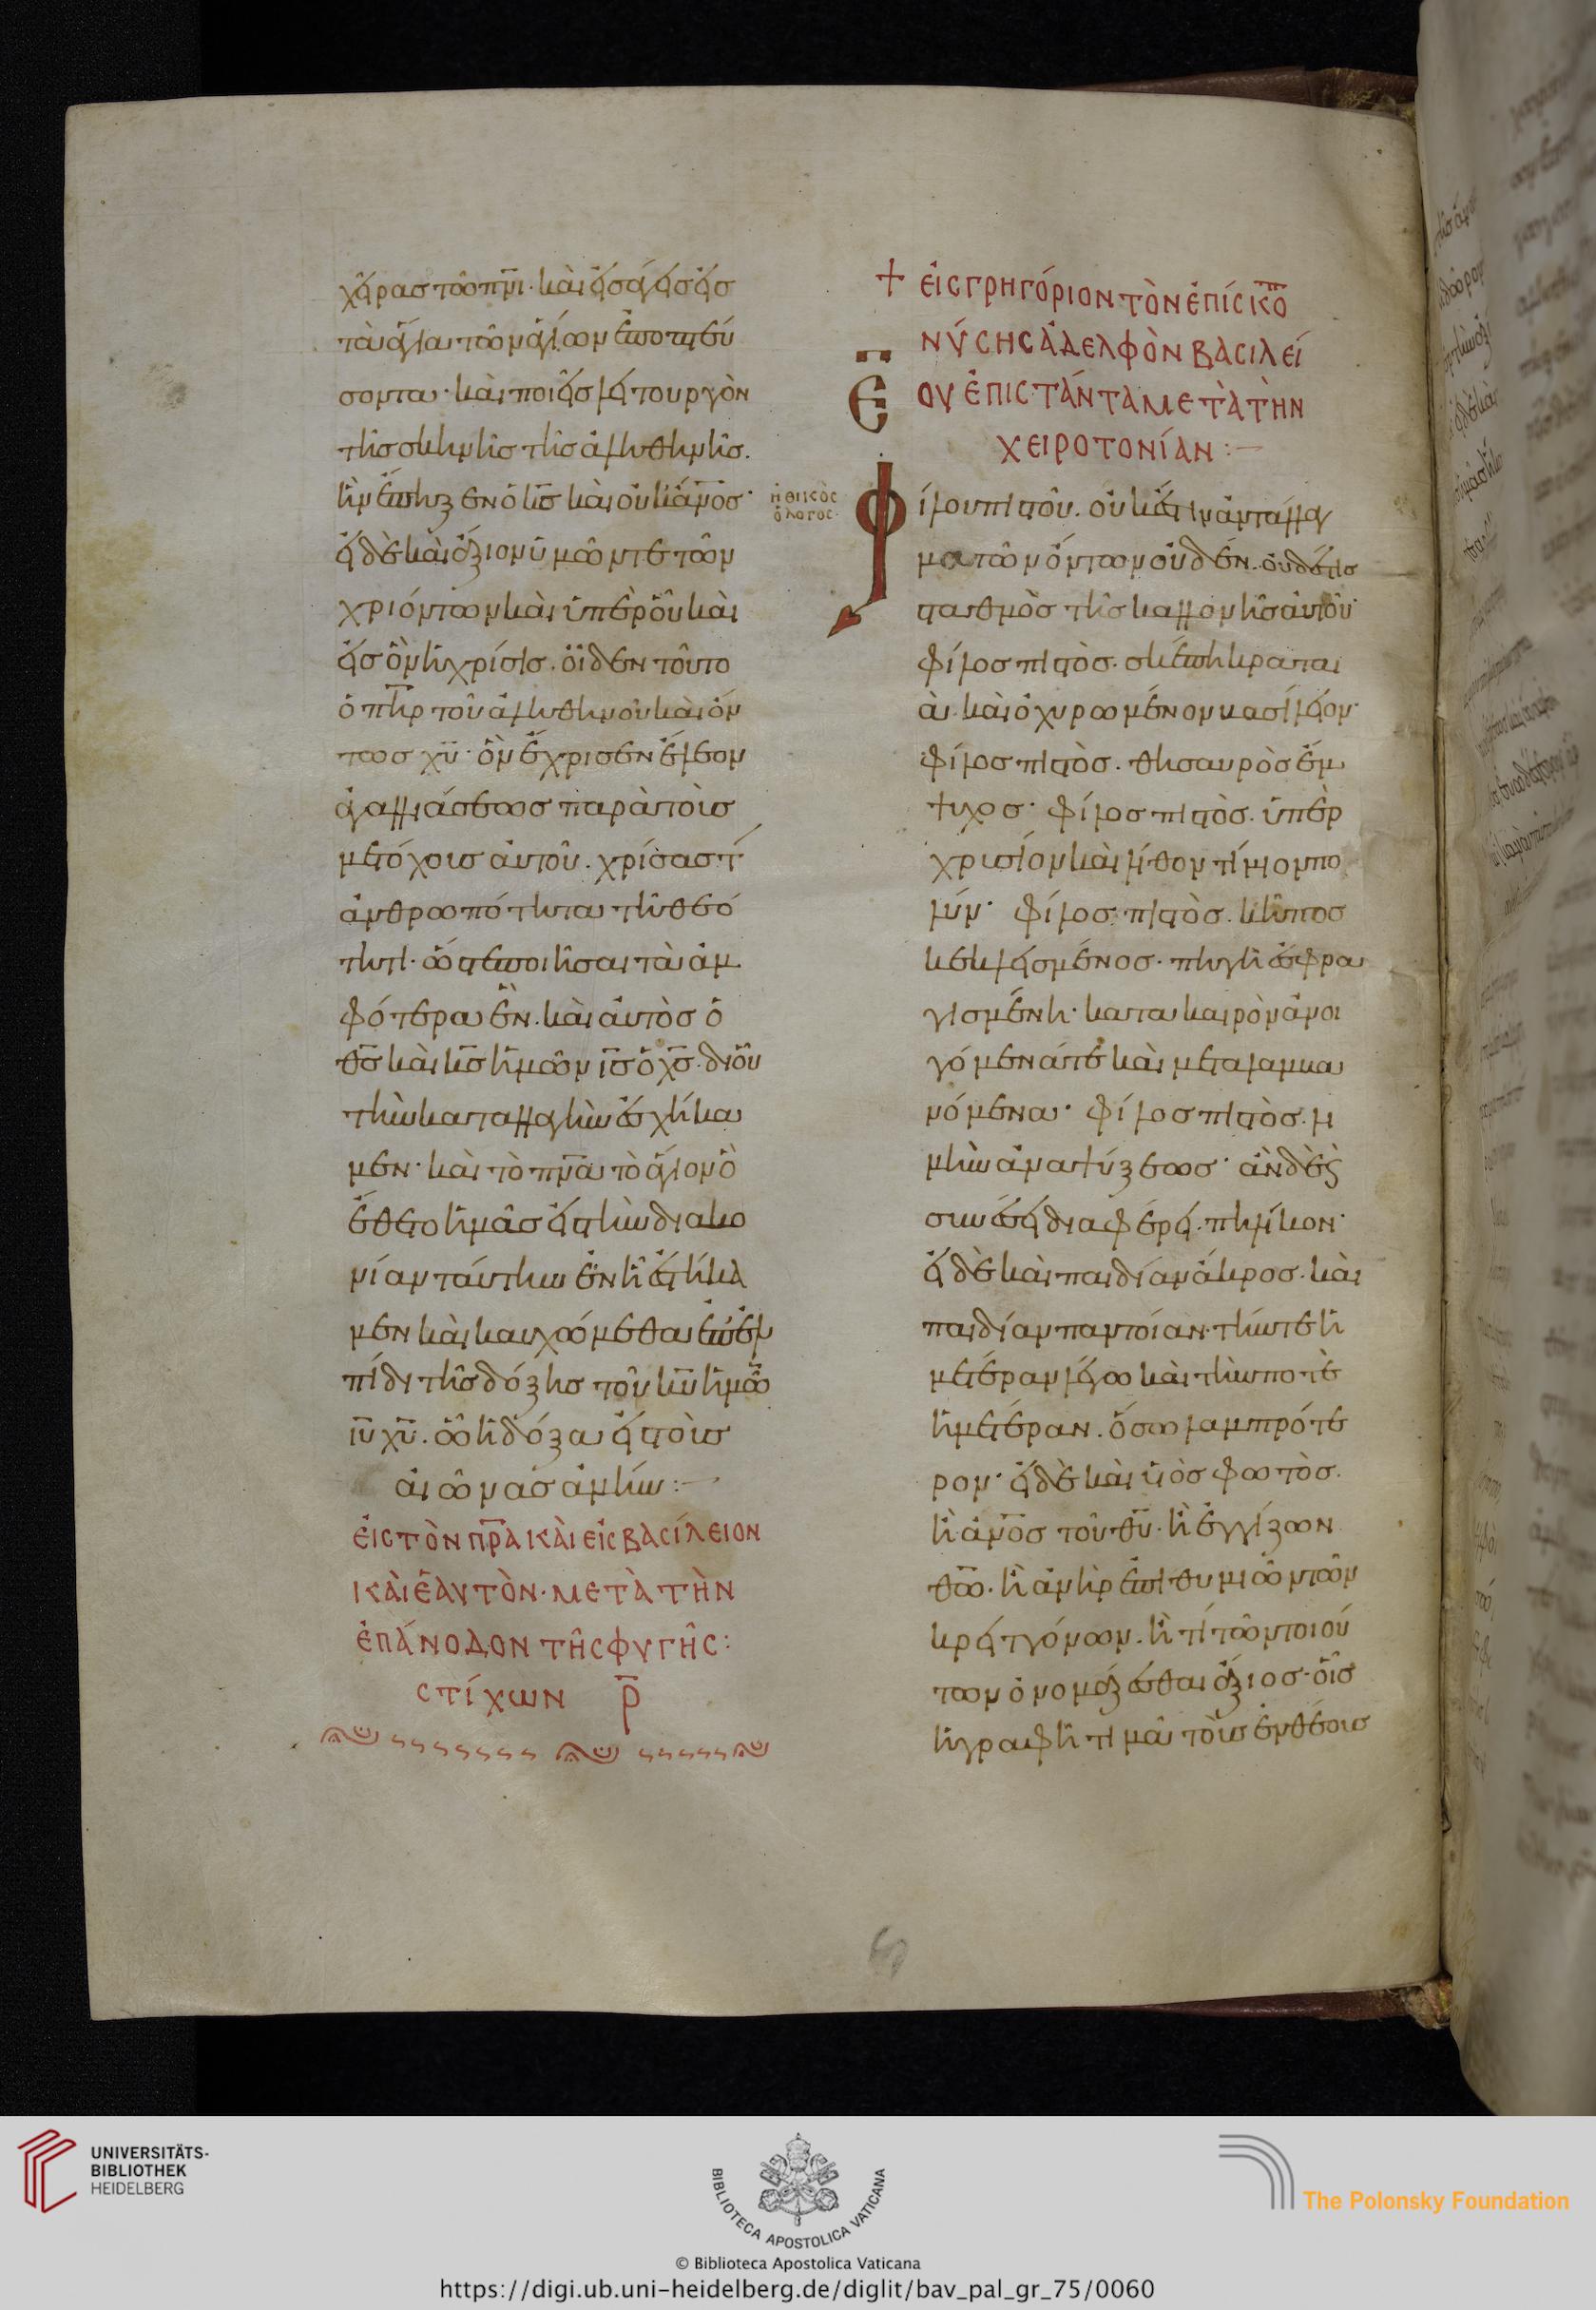 χεῖρας τῶ πνι· καὶ εἰσάγεις εἰς
τὰ ἅγια τῶν ἁγίων ἐποπτεύ
σοντα· καὶ ποιεῖς λειτουργὸν
τῆς σκηνῆς τῆς ἀληθινῆς.
ἣν ἔπηξεν ὁ κς καὶ οὐκ ἄνος·
εἰ δὲ καὶ ἄξιον ὑμῶν τε τῶν
χριόντων καὶ ὑπὲρ οὗ καὶ
εἰς ὃν ἡ χρίσις. οἶδεν τοῦτο
ὁ πὴρ τοῦ ἀληθινοῦ καὶ ὄν
τως χυ· ὃν ἔχρισεν ἔλεον
ἀγαλλιάσεως παρὰ τοὺς
μετόχους αὐτοῦ. χρίσας τ
ἀνθρωπότητα τῆ θεό
τητι· ὥστε ποιῆσαι τὰ ἀμ
φότερα ἕν. καὶ αὐτὸς ὁ
θς καὶ κς ἡμῶν ις ὁ χς· δι οὗ
τὴν καταλλαγὴν ἐσχήκα
μεν· καὶ τὸ πνα τὸ ἅγιον ὃ
ἔθετο ἡμᾶς εἰς τὴν διακο
νίαν ταύτην ἐν ἧ ἑστήκα
μεν καὶ καυχώμεθα ἐπ ἐλ
πίδι τῆς δόξης τοῦ κυ ἡμῶν
ιυ χυ. ὧ ἡ δόξα εἰς τοὺς
αἰῶνας ἀμήν:
ΕἸΣ ΤῸΝ ΠΡΑ ΚΑῚ ΕἸΣ ΒΑΣΊΛΕΙΟΝ
ΚΑῚ ἙΑΥΤῸΝ· ΜΕΤᾺ ΤῊΝ
ἘΠΆΝΟΔΟΝ ΤΗ͂Σ ΦΥΓΗ͂Σ:
ΣΤΊΧΩΝ Ρ
+ ΕἸΣ ΓΡΗΓΌΡΙΟΝ ΤῸΝ ἘΠΊΣΚΟΠ
ΝΎΣΗΣ ἈΔΕΛΦῸΝ ΒΑΣΙΛΕΊ
ΟΥ ἘΠΙΣΤΆΝΤΑ ΜΕΤᾺ ΤῊΝ
ΧΕΙΡΟΤΟΝΊΑΝ:
ἠθικὸς
ὁ λόγος·
Φίλου πιστοῦ. οὐκ ἔστιν ἀντάλλαγ
μα τῶν ὄντων οὐδέν. οὐδέ τις
σταθμὸς τῆς καλλονῆς αὐτοῦ·
φίλος πιστὸς. σκέπη κραται
ὰ· καὶ ὀχυρωμένον βασίλειον·
φίλος πιστὸς. θησαυρὸς ἔμ
ψυχος· φίλος πιστὸς. ὑπὲρ
χρυσίον καὶ λίθον τίμιον πο
λύν· φίλος πιστὸς. κῆπος
κεκλεισμένος. πηγὴ ἐσφρα
γισμένη· κατα καιρὸν ἀνοι
γόμενά τε καὶ μεταλαμβα
νόμενα· φίλος πιστὸς. λι
μὴν ἀναψύξεως· ἂν δὲ καὶ
συνέσει διαφέρει. πηλίκον·
εἰ δὲ καὶ παιδείαν ἄκρος. καὶ
παιδείαν παντοίαν· τήν τε ἡ
μετέραν λέγω καὶ τήν ποτὲ
ἡμετέραν. ὅσω λαμπρότε
ρον· εἰ δὲ καὶ υἱὸς φωτὸς.
ἢ ἄνος τοῦ θυ. ἢ ἐγγίζων
θῶ. ἢ ἀνὴρ ἐπιθυμιῶν τῶν
κρειττόνων. ἢ τί τῶν τοιού
των ὀνομάζεσθαι ἄξιος· οἷς
ἡ γραφὴ τιμᾶ τοὺς ἐνθέους
UNIVERSITÄTS-
BIBLIOTHEK
HEIDELBERG
BIBLIOTECA APOSTOLICA VATICANA
The Polonsky Foundation
© Biblioteca Apostolica Vaticana
https://digi.ub.uni-heidelberg.de/diglit/bav_pal_gr_75/0060